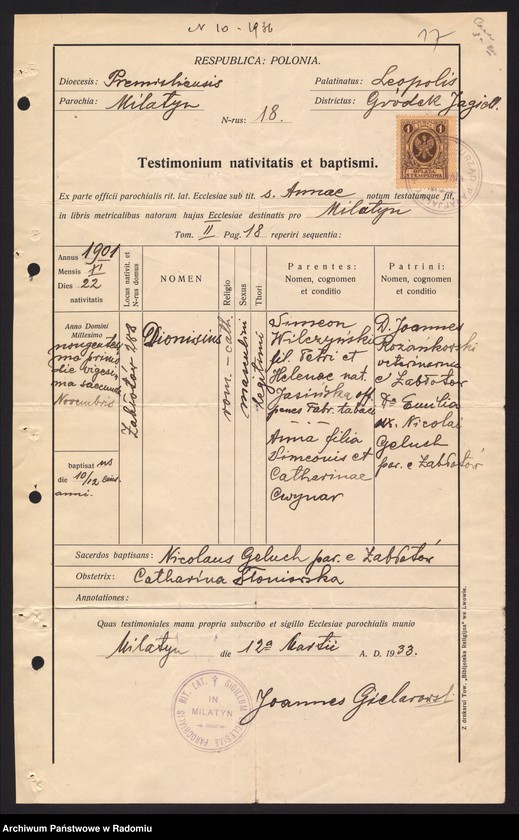 N 10 - 1936
17
RESPUBLICA: POLONIA.
Dioecesis: Premisliensis
Palatinatus: Leopolis
Parochia: Milatyn
Districtus: Gródek Jagiell.
N-rus: 18.
1 1
OPŁATA
STEMPLOWA
Testimonium nativitatis et baptismi.
Ex parte officii parochialis rit. lat. Ecclesiae sub tit. s. Annae notum testatumque fit,
in libris metricalibus natorum hujus Ecclesiae destinatis pro Milatyn
Tom. II Pag. 18 reperiri sequentia:
Annus 1901
Mensis XI
Dies 22
nativitatis
Locus nativit. et
N-rus domus
NOMEN
Religio
Sexus
Thori
Parentes:
Nomen, cognomen
et conditio
Patrini:
Nomen, cognomen
et conditio
Anno Domini
Millesimo
nongentesi
mo primo
die vigesi
ma secunda
Novembris
Zabłotór 288
Dionisius
rom. - cath.
masculini
legitimi
Simeon
Wilczyński
fil. Petri et
Helenae nat.
Jasińska off.
penes Fabr. Tabaci
Anna filia
Simeonis et
Catharinae
Cwynar
D. Joannes
Rozankowski
veterinarius
e Zabłotór
Da Emilia
ux. Nicolai
Geluch
par. e Zabłotór
baptisat us
die 10/12 eius.
anni.
Sacerdos baptisans: Nicolaus Geluch par. e Zabłotór
Obstetrix: Catharina Słoniowska
Annotationes:
Quas testimoniales manu propria subscribo et sigillo Ecclesiae parochialis munio
Milatyn die 12a Martii A. D. 1933.
SIGILLUM ECCLESIAE PAROCHIALIS RIT. LAT.
IN
MILATYN
Joannes Gielarowski
Z drukarni Tow. „Bibljoteka Religijna" we Lwowie.
Archiwum Państwowe w Radomiu